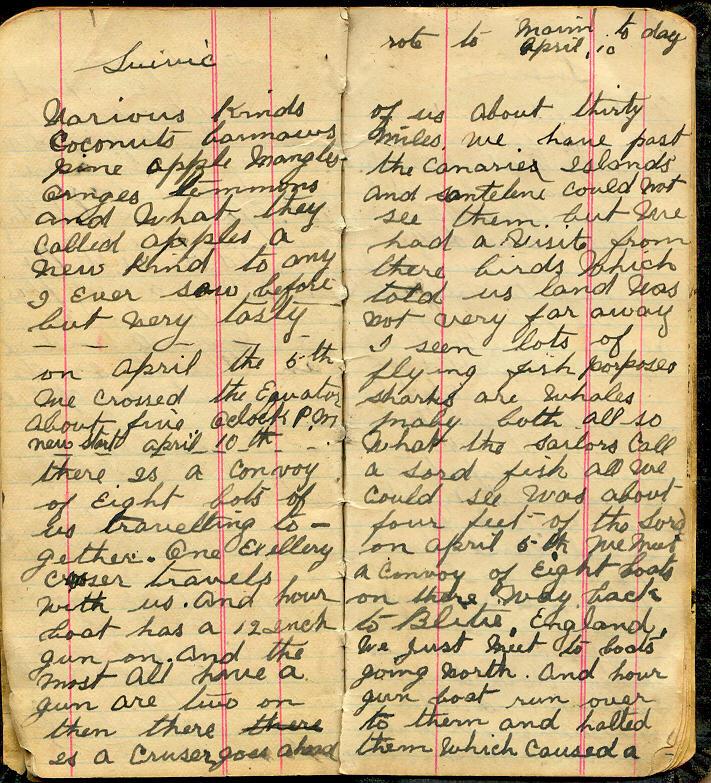 Suivic
Various Kinds
Coconuts bannaws
pine apple Mangles
Oringes Lemmons
and What they
Called apples a
New Kind to any
I Ever saw before
but very tasty
on April the 5th
We crossed the Equator
About five Oclock P.M
new start april 10th
there is a Convoy
of Eight bots of
us travelling to-
gether. One Exellery
Cruser travels
with us. And hour
boat has a 12 Inch
gun on. And the
most all have a
gun are two on
then there there
is a Cruser goes ahead
rote to Maim to day
April, 10
of us about thirty
Miles. We have past
the Canaries Islands
and santeline could Not
see them but We
had a Visit from
there birds Which
told us land Was
Not very far away
I seen lots of
flying fish porposes
sharks are Whales
maby both all so
What the sailors Call
a sord fish all We
could see Was about
four feet of the Sord
on april 5th We Meet
a Convoy of Eight boats
on there Way back
to Blitie, England,
We Just Meet to boats
going North. And hour
gun boat run over
to them and halted
them Which Caused a